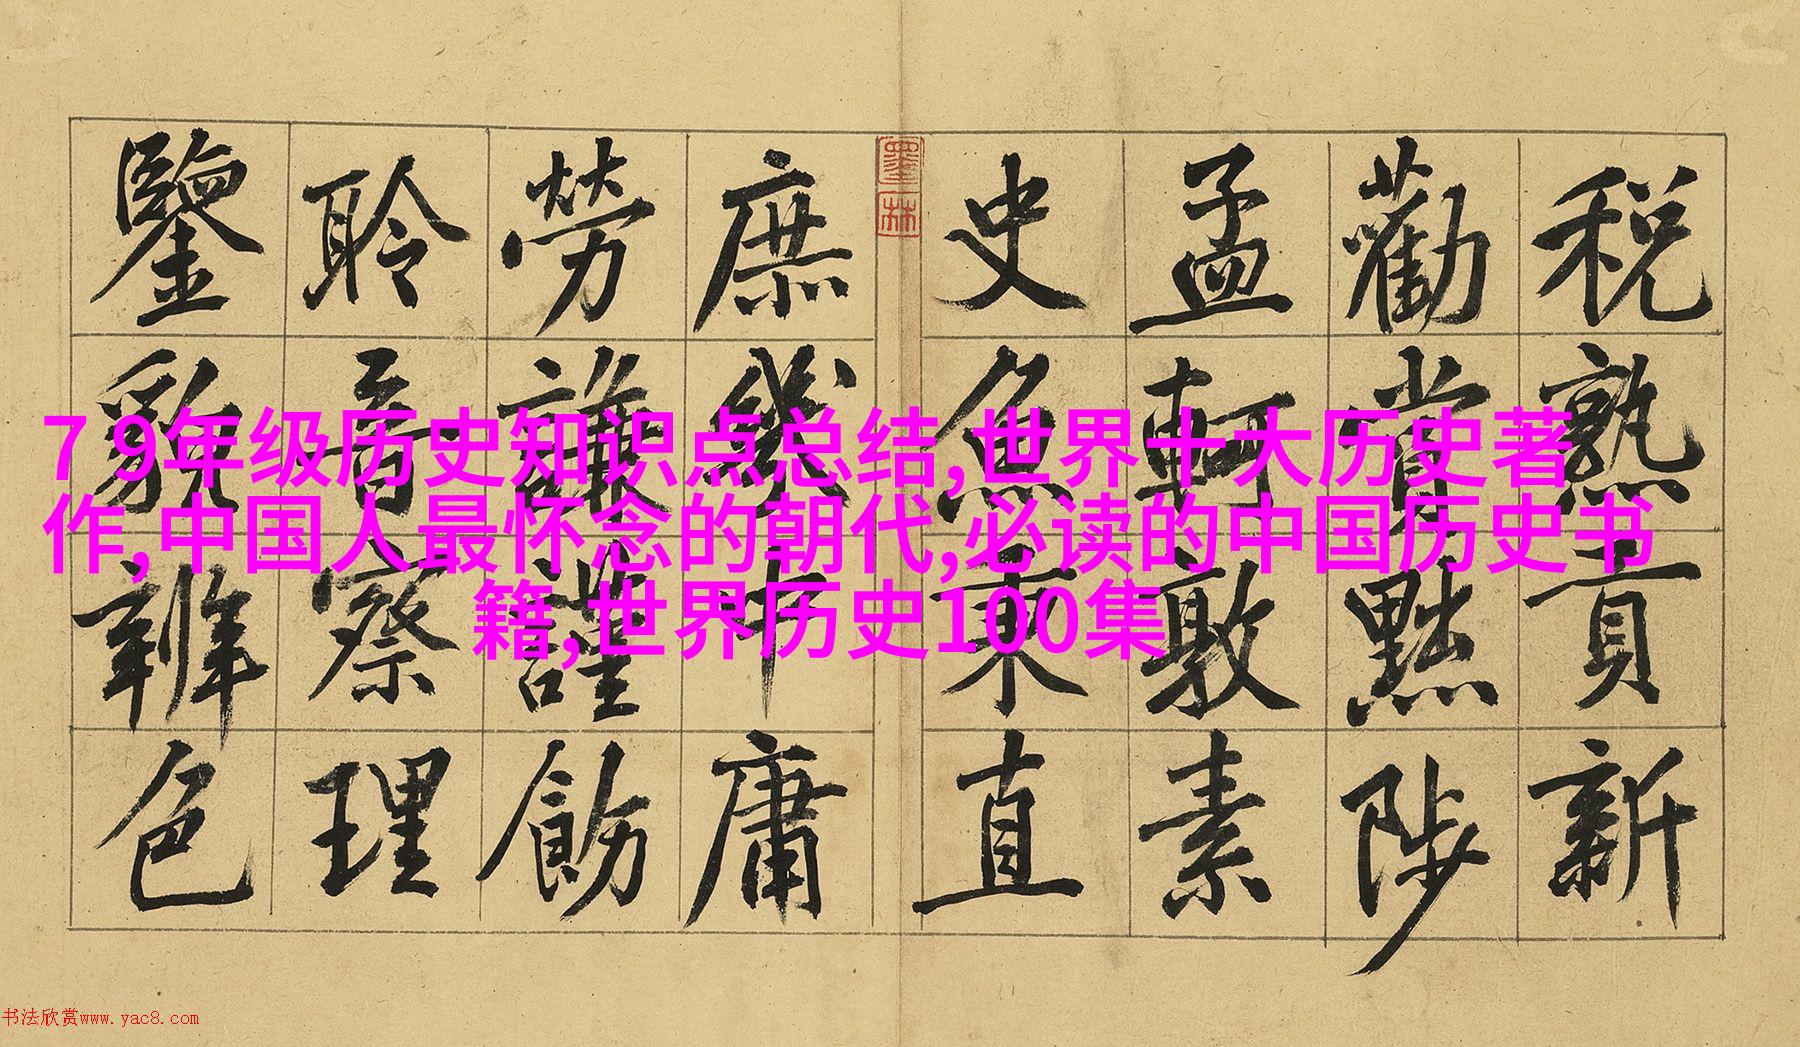 税熟貢新
勸賞黜陟
孟軻敦素
史魚秉直
庶幾中庸
勞謙謹飭
聆音察理
鑒貌辨色
墨林
7 9年级历史知识点总结,世界十大历史著
作,中国人最怀念的朝代,必读的中国历史书
籍,世界历史100集
书法欣赏www.yac8.com